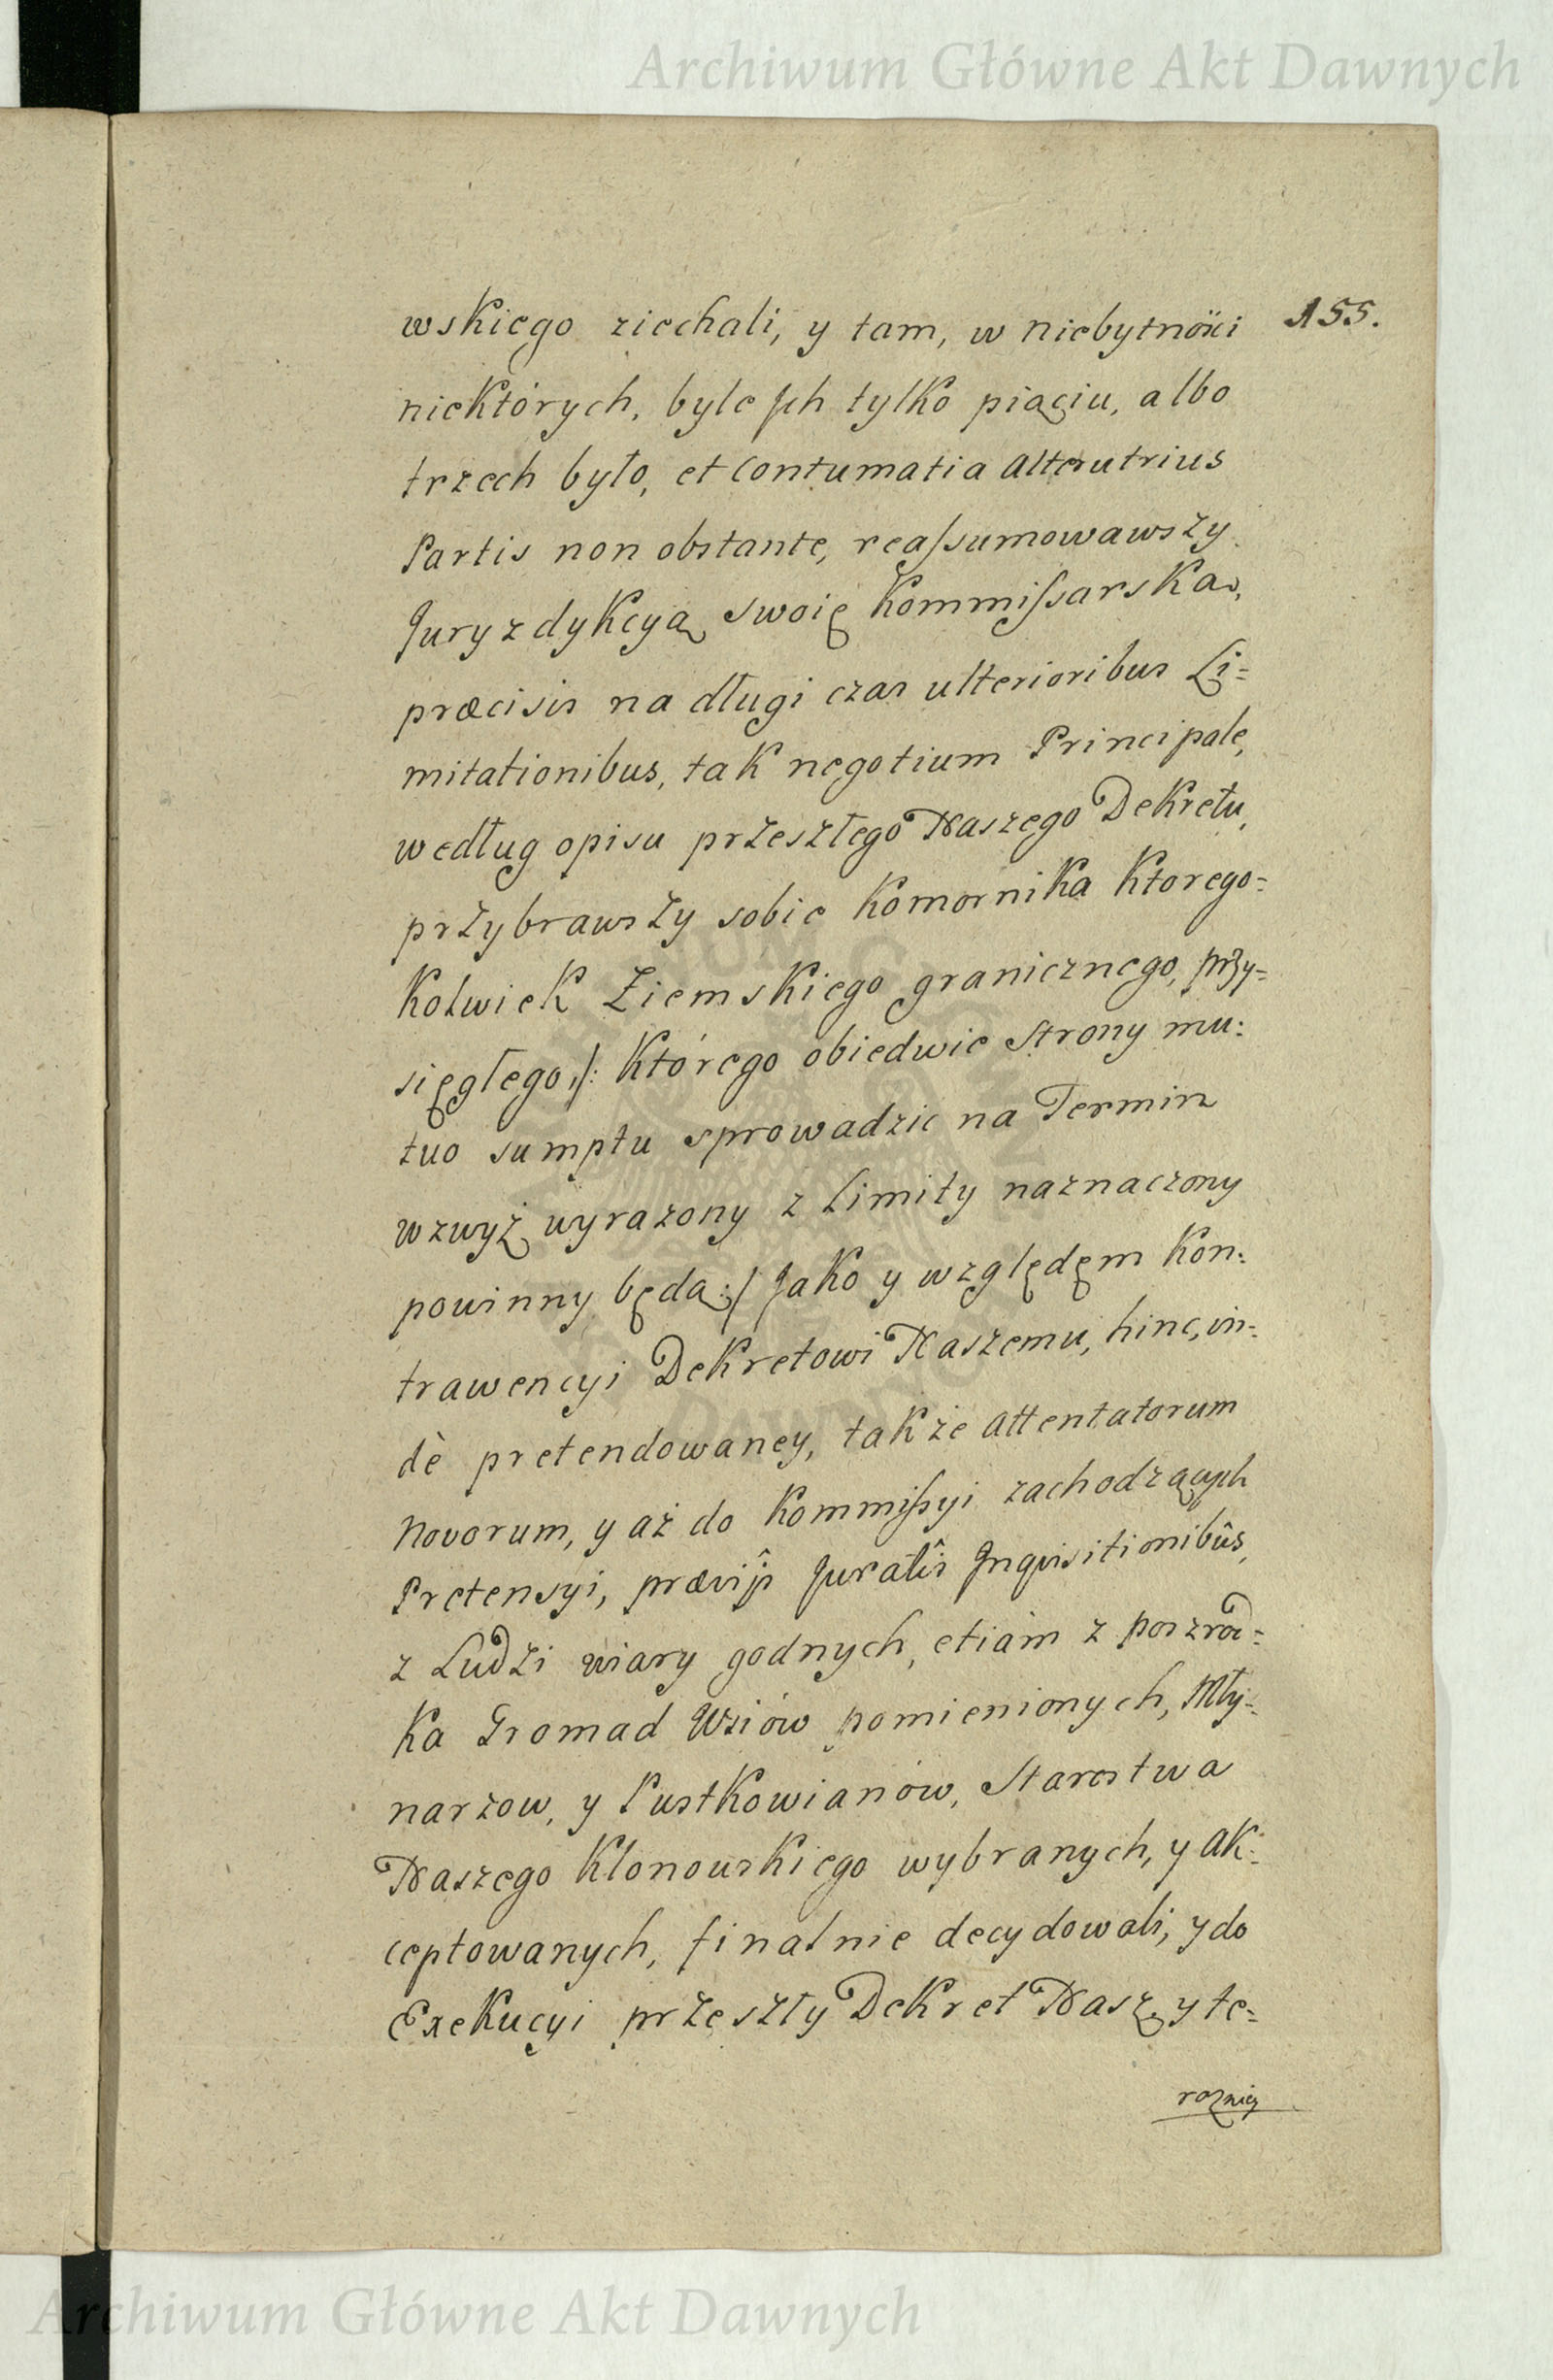 Archiwum Główne Akt Dawnych
155.
wskiego ziechali, y tam, w niebytności
niektórych, byle Jch tylko piąciu, albo
trzech było, et Contumatia alterutrius
Partis non obstante, reaſsumowawszy
Juryzdykcyą swoię Kommiſsarską,
præcisis na długi czas ulterioribus Li=
mitationibus, tak negotium Principale,
według opisu przeszłego Naszego Dekretu,
przybrawszy sobie Komornika Ktorego=
Kolwiek Ziemskiego granicznego, przy=
sięgłego,/: Którego obiedwie Strony mu:
tuo sumptu sprowadzic na Termin
wzwyż wyrazony z Limity naznaczony
powinny będą:/ Jako y względęm Kon:
trawencyi Dekretowi Naszemu, hinc, in:
dè pretendowaney, także attentatorum
Novorum, y aż do Kommiſsyi zachodzących
Pretensyi, prævijs Juratîs Jnquisitionibûs,
z Ludzi wiary godnych, etiam z poszrod=
Ka Gromad Wsiów pomienionych, Mły=
narzow, y Pustkowianów, Starostwa
Naszego Klonowskiego wybranych, y ak:
ceptowanych, finalnie decydowali, y do
Exekucyi przeszły Dekret Nasz, y te=
raznieÿ
Archiwum Główne Akt Dawnych